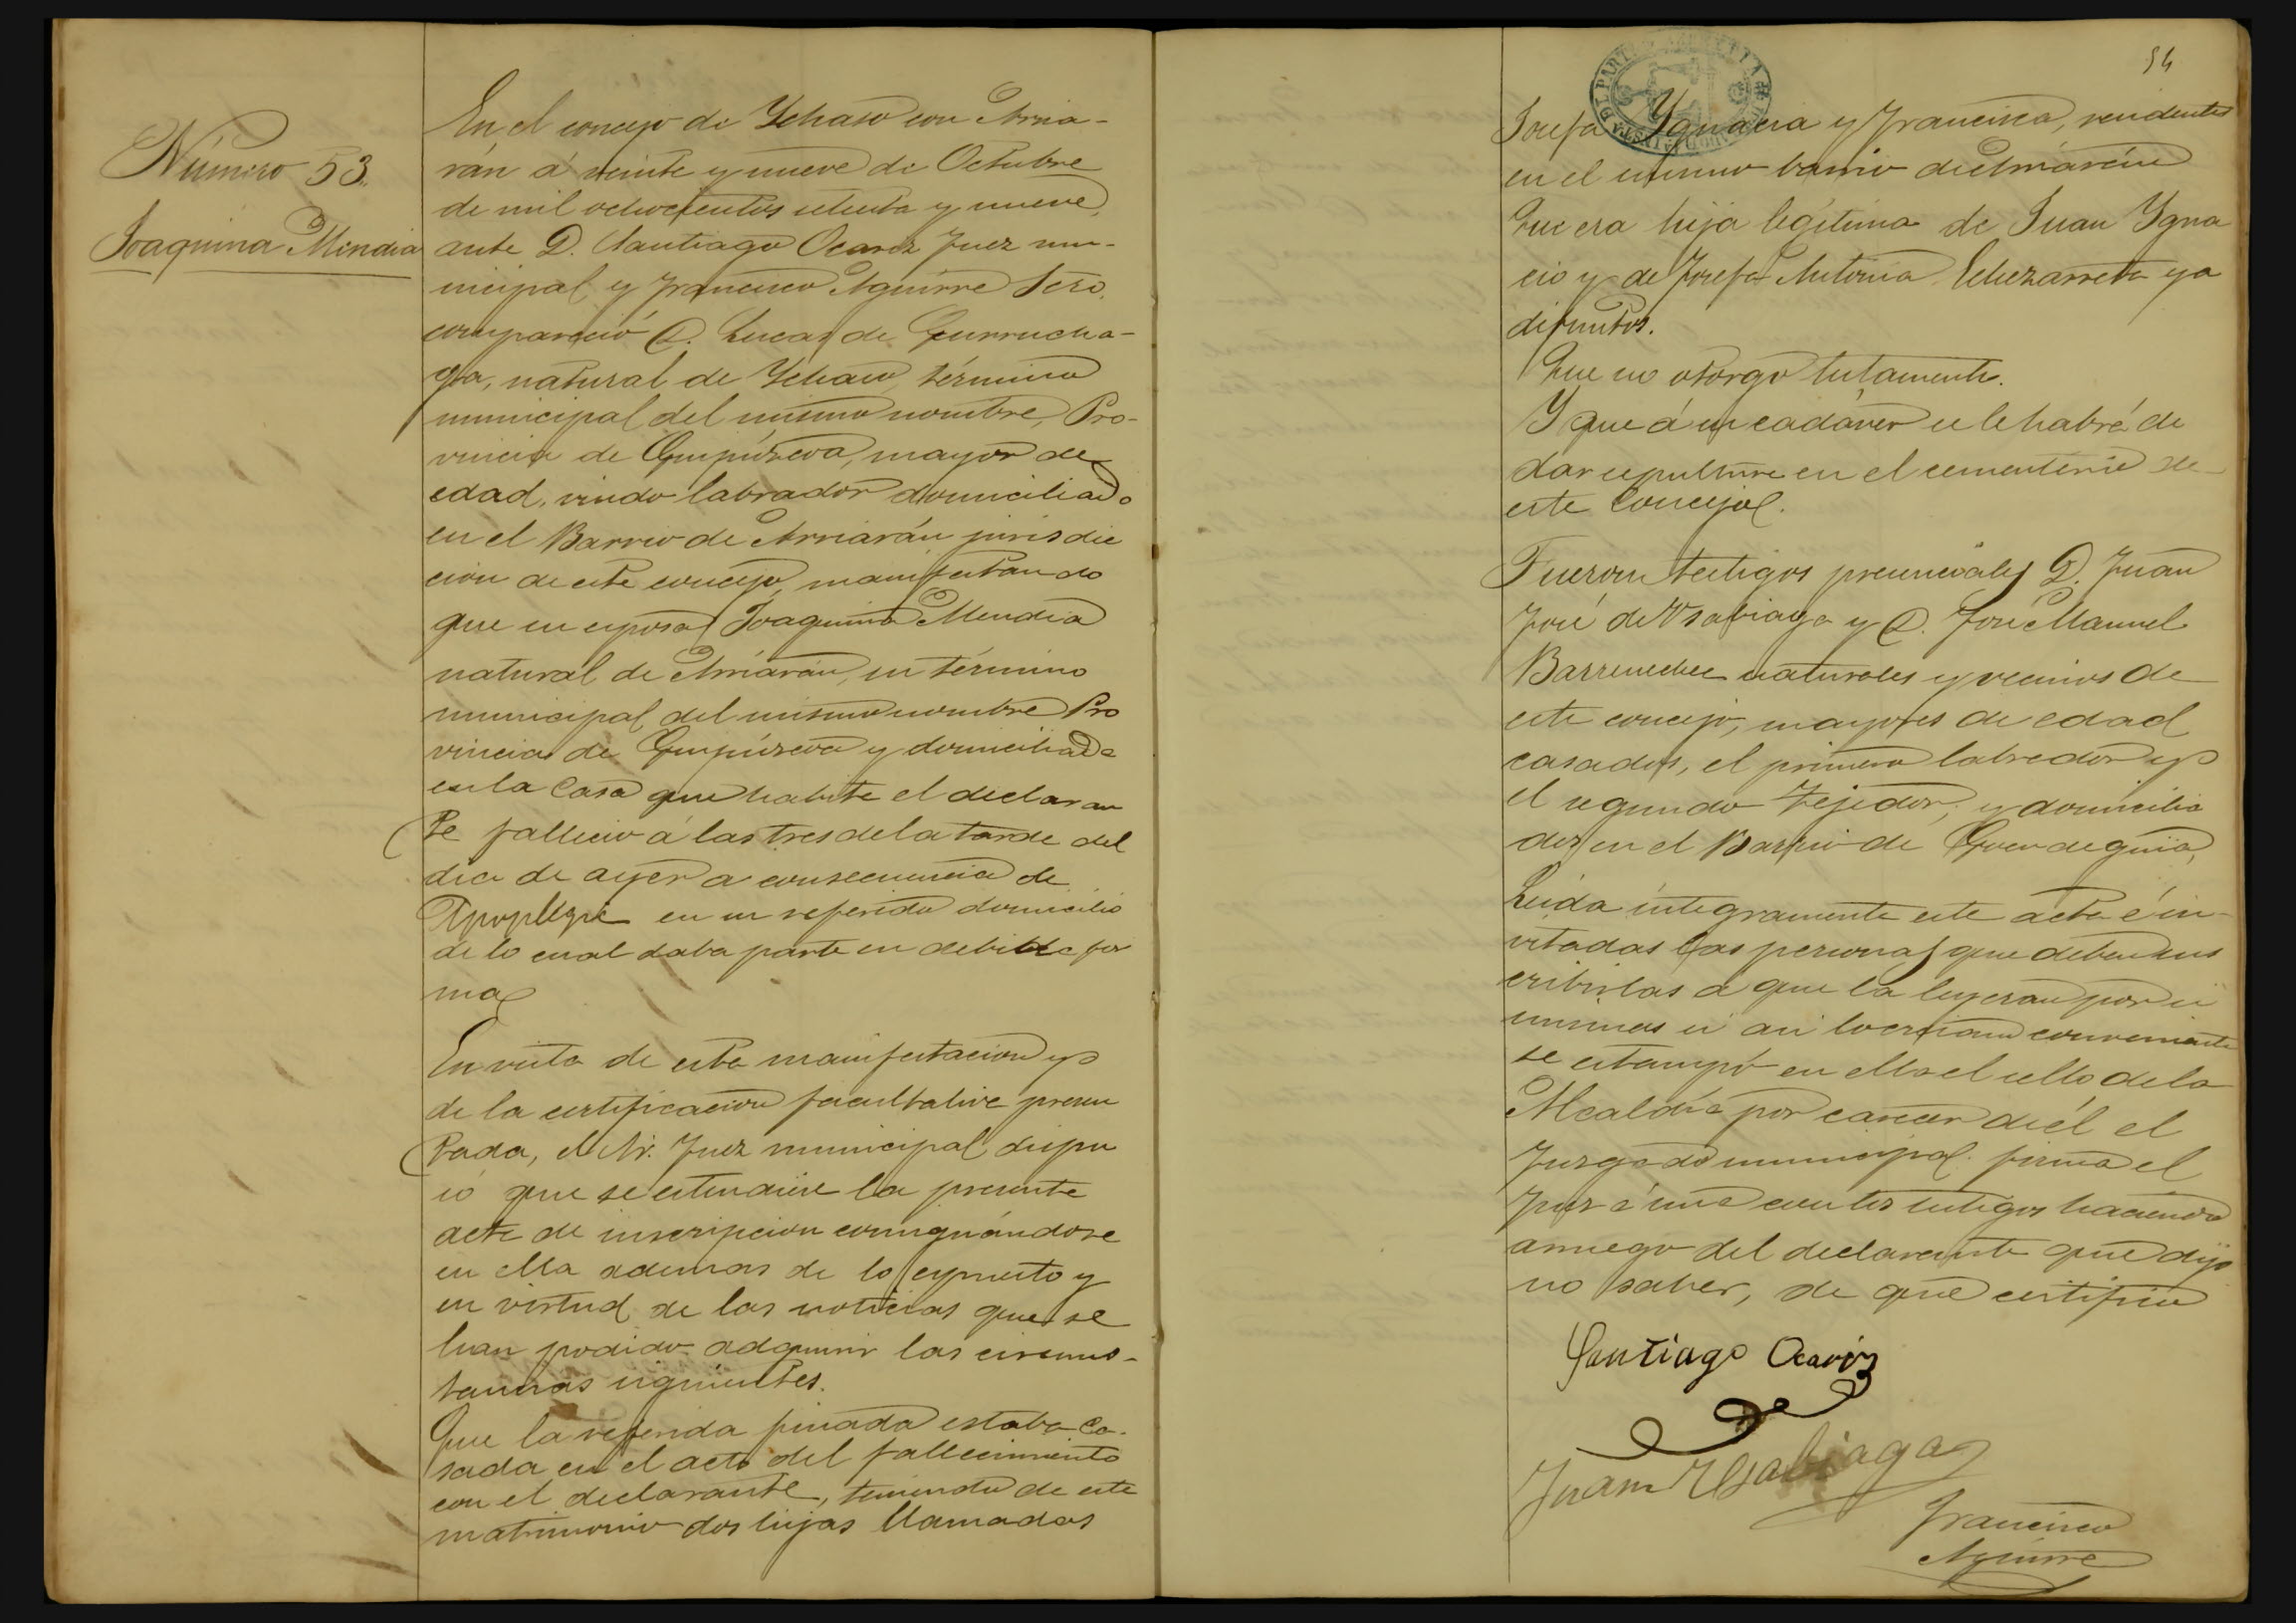 Número 53.
Joaquina Mendia
En el concejo de Ychaso con Arria-
rán á veinte y nueve de Octubre
de mil ochocientos ochenta y nueve,
ante D. Santiago Ocariz Juez mu-
nicipal y Francisco Aguirre Scro.
compareció D. Lucas de Gurrucha-
ga, natural de Ychaso, término
municipal del mismo nombre, Pro-
vincia de Guipúzcoa, mayor de
edad, viudo labrador domiciliado
en el Barrio de Arriarán jurisdic
cion de este concejo, manifestando
que su esposa Joaquina Mendia
natural de Arriarán, su término
municipal del mismo nombre Pro
vincia de Guipúzcoa y domiciliada
en la Casa que habita el declaran
te falleció á las tres de la tarde del
dia de ayer a consecuencia de
Apoplegia en su referido domicilio
de lo cual daba parte en debida for
ma
En vista de esta manifestacion y
de la certificacion facultativa presen
tada, el Sr. Juez municipal dispu
so que se estendiese la presente
acta de inscripcion consignándose
en ella ademas de lo espuesto y
en virtud de las noticias que se
han podido adquirir las circuns-
tancias siguientes.
Que la referida finada estaba ca-
sada en el acto del fallecimiento
con el declarante, teniendo de este
matrimonio dos hijas llamadas
54
Josefa Ygnacia y Francisca, residentes
en el mismo barrio de Arriarán
Que era hija legítima de Juan Ygna
cio y de Josefa Antonia Echezarreta ya
difuntos.
Que no otorgó testamento.
Y que á su cadáver se le habrá de
dar sepultura en el cementerio de
este Concejo.
Fueron testigos presenciales D. Juan
José de Usabiaga y D. José Manuel
Barrenechea naturales y vecinos de
este concejo, mayores de edad
casados, el primero labrador y
el segundo Tejedor, y domicilia
dos en el Barrio de
Leida íntegramente este acta é in-
vitadas las personas que deben sus
cribirlas a que la leyeran por si
mismas si asi lo creian conveniente
se estampó en ella el sello de la
Alcaldía por carecer de él el
Juzgado municipal. firma el
Juez é una con los testigos haciendo
arruego del declarante que dijo
no saber, de que certifico
Santiago Ocariz
Juan Usabiaga
Francisco
Aguirre